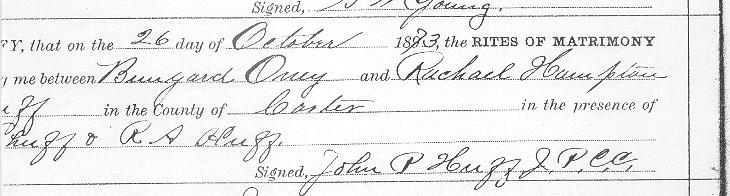 Signed, B W Young.
FY, that on the 26 day of October 1893, the RITES OF MATRIMONY
y me between Bunyard Oney and Rachael Hampton
uff in the County of Carter in the presence of
huff & R A Huff.
Signed, John P Huff J. P. C. C.